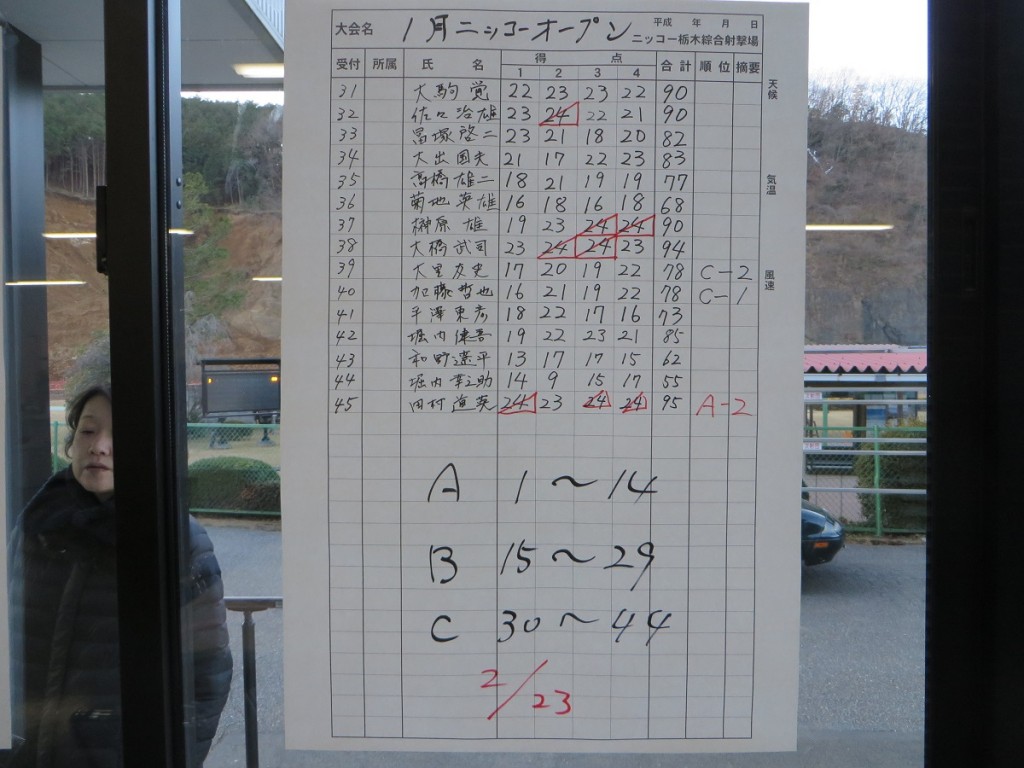 大会名 1月ニッコーオープン 平成 年 月 日
ニッコー栃木綜合射撃場
受付 所属 氏 名 得 点 合計 順位 摘要
1 2 3 4
天候
31 大駒 覚 22 23 23 22 90
32 佐々治雄 23 24 22 21 90
33 冨塚啓二 23 21 18 20 82
34 大出国夫 21 17 22 23 83
35 高橋雄二 18 21 19 19 77
気温
36 菊地英雄 16 18 16 18 68
37 榊原 雄 19 23 24 24 90
38 大橋武司 23 24 24 23 94
39 大里友史 17 20 19 22 78 C-2
風速
40 加藤哲也 16 21 19 22 78 C-1
41 平澤東彦 18 22 17 16 73
42 堀内健吾 19 22 23 21 85
43 和町遼平 13 17 17 15 62
44 堀内幸之助 14 9 15 17 55
45 田村道英 24 23 24 24 95 A-2
A 1〜14
B 15〜29
C 30〜44
2/23